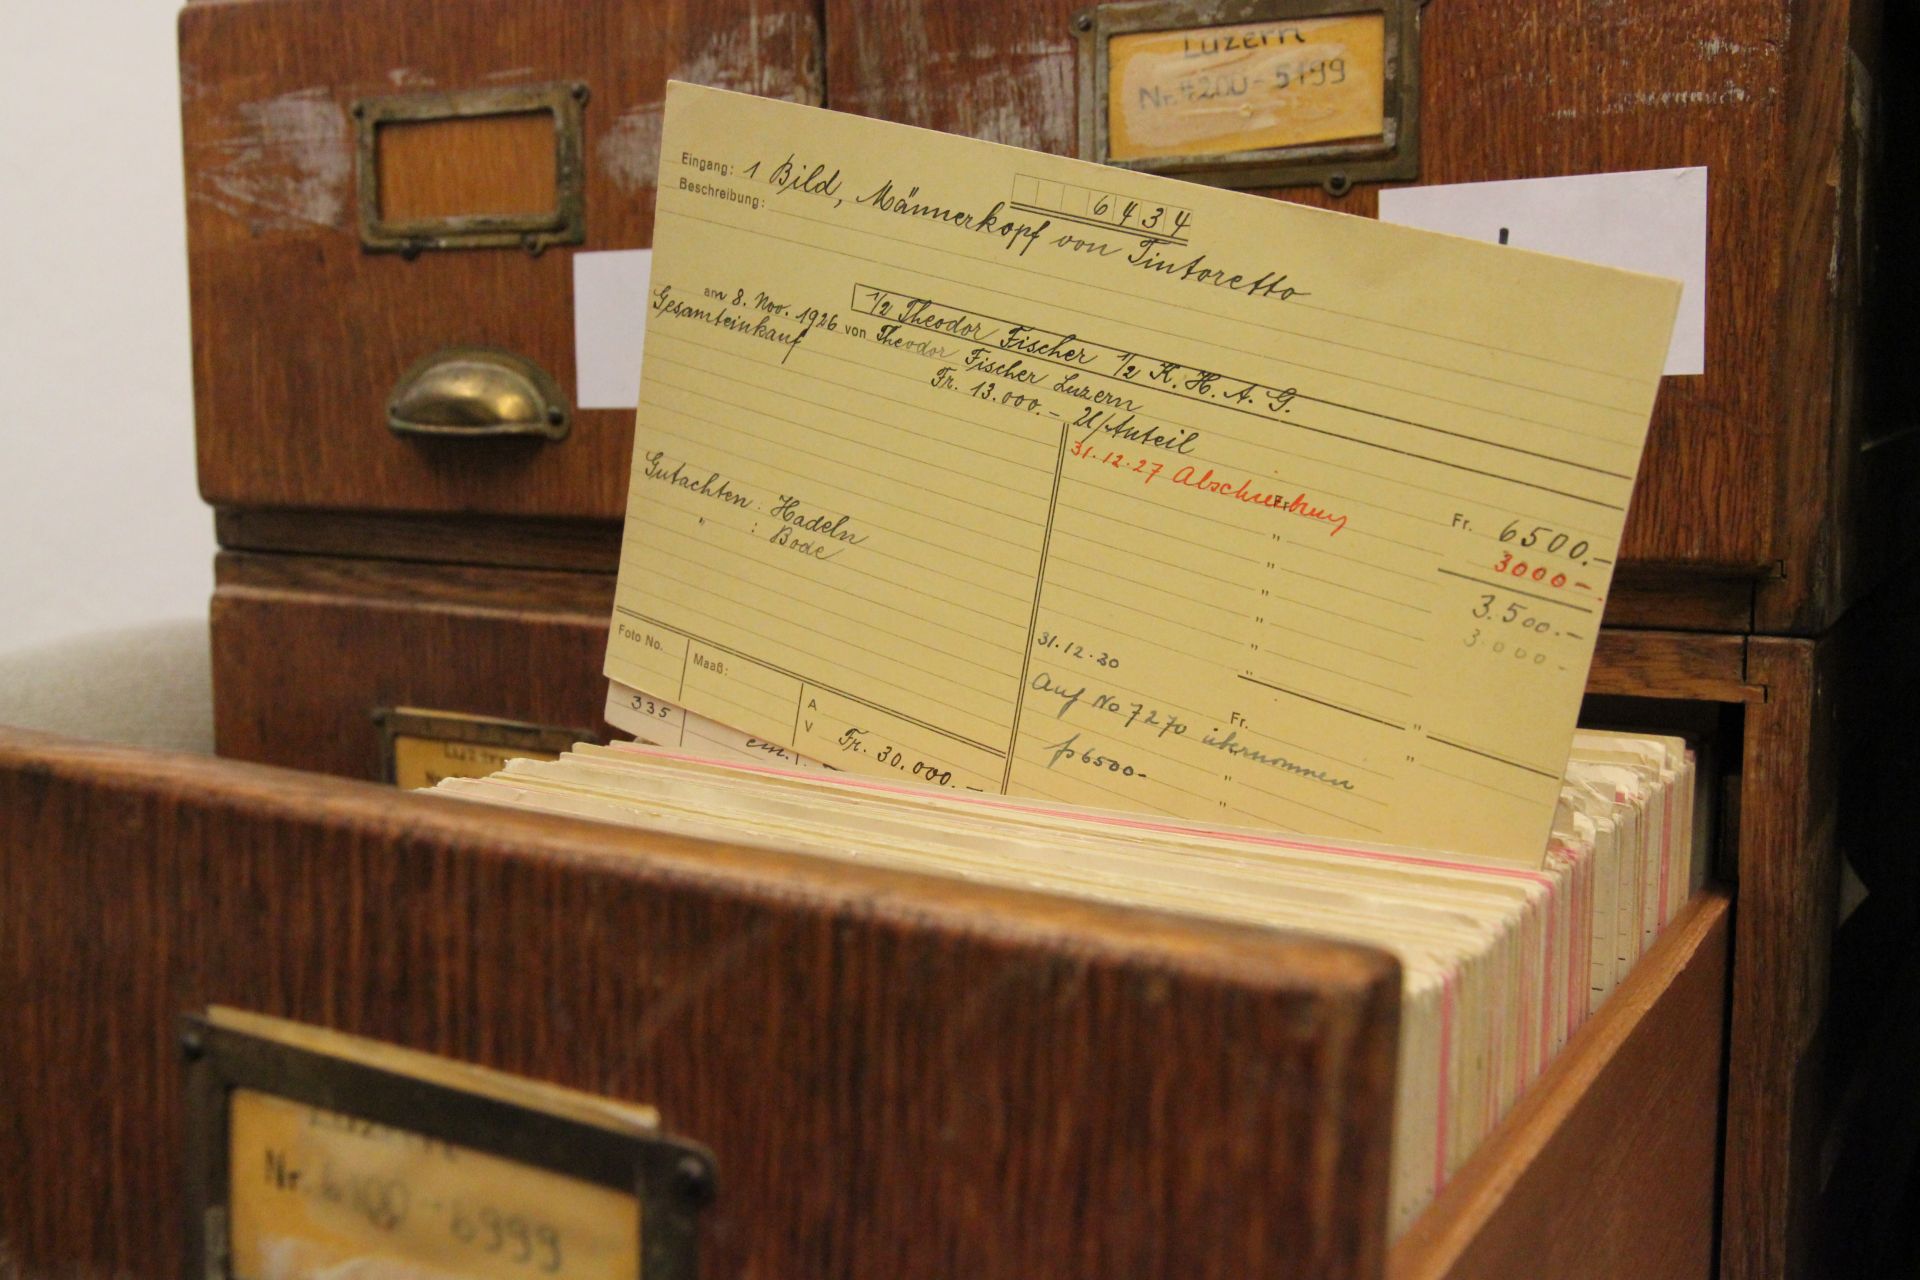 Luzern
Nr. 4200 - 5199
6434
Eingang: 1 Bild, Männerkopf von Tintoretto
Beschreibung:
1/2 Theodor Fischer 1/2 K. H. A. G.
am 8. Nov. 1926 von Theodor Fischer Luzern
Gesamteinkauf Fr. 13.000.-
Anteil Fr. 6500.-
31.12.27 Abschreibung Fr. 3000-
3.500.-
3.000-
Gutachten: Hadeln
" : Bode
31.12.30
Auf No 7270 übernommen
Fr.
6500-
Foto No.
Maaß:
A
V
Fr. 30.000.-
335
cm.
Nr. - 6999